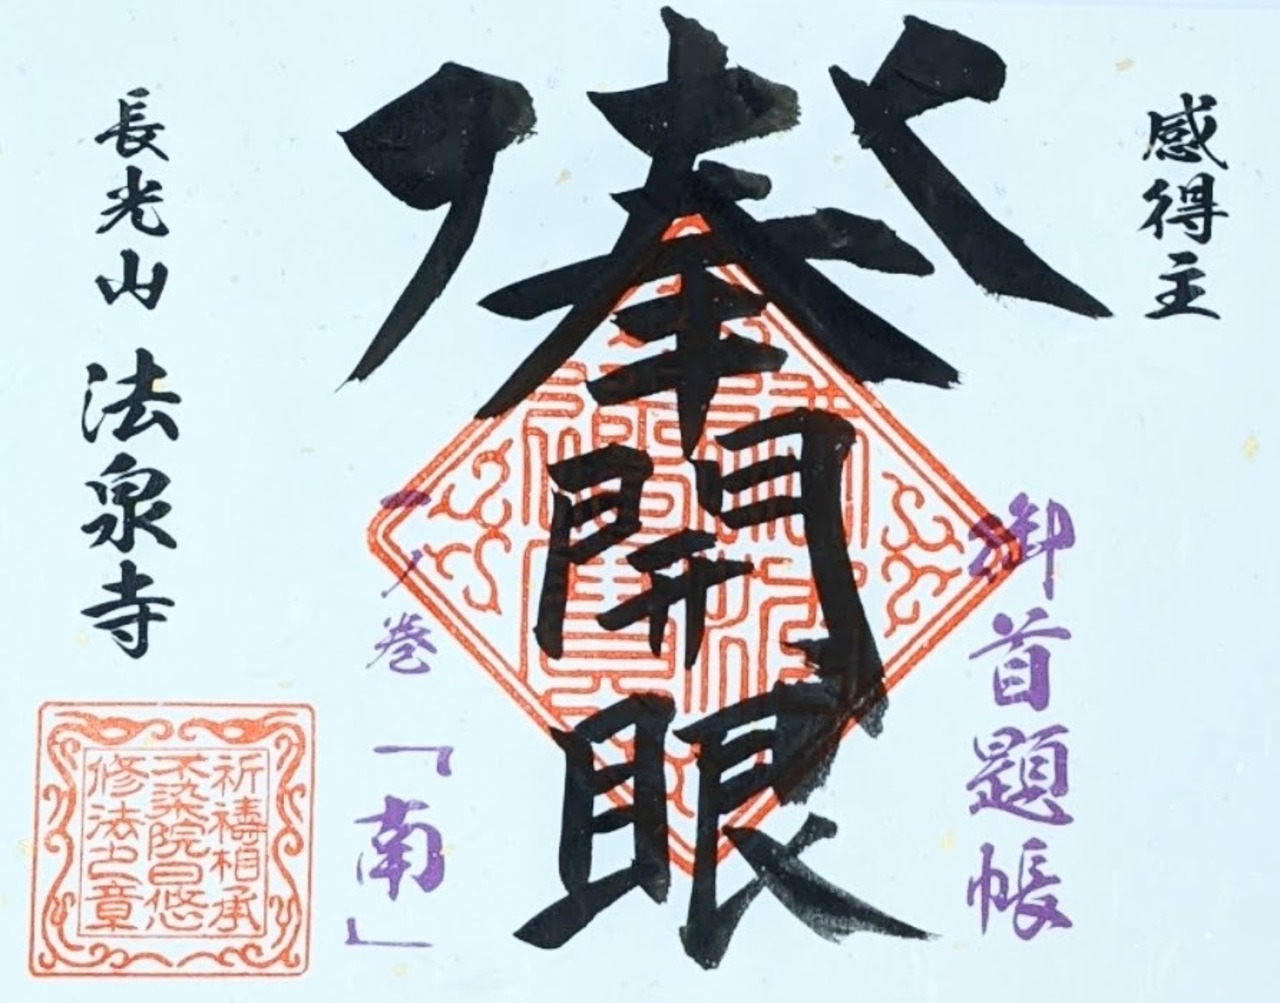 感得主
御首題帳
奉開眼
一ノ巻「南」
長光山 法泉寺
祈禱相承
不染院日悠
修法之章